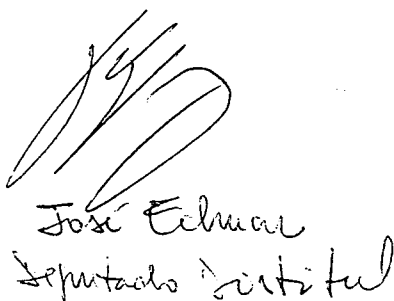 José Edmar
Deputado Distrital